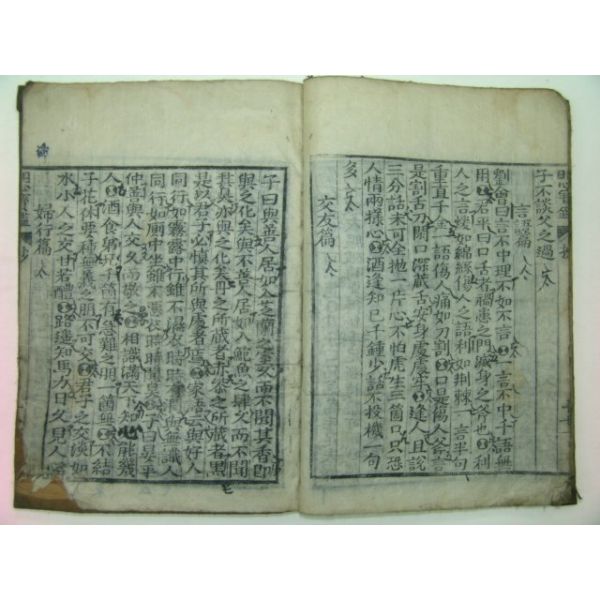 明心寶鑑 抄
子不談父之過
言語篇
劉會曰言不中理不如不言○一言不中千語無
用○君平曰口舌者禍患之門滅身之斧也○利
人之言煖如綿絮傷人之語利如荊棘一言半句
重直千金一語傷人痛如刀割○口是傷人斧言
是割舌刀閉口深藏舌安身處處牢○逢人且說
三分話未可全抛一片心不怕虎生三箇口只恐
人情兩樣心○酒逢知己千鍾少話不投機一句
多
交友篇
子曰與善人居如入芝蘭之室久而不聞其香即
與之化矣與不善人居如入鮑魚之肆久而不聞
其臭亦與之化矣丹之所藏者赤漆之所藏者黑
是以君子必愼其所與處者焉○家語云與好人
同行如霧露中行雖不濕衣時時有潤與無識人
同行如厠中坐雖不汚衣時時聞臭○子曰晏平
仲善與人交久而敬之○相識滿天下知心能幾
人○酒食兄弟千箇有急難之朋一箇無○不結
子花休要種無義之朋不可交○君子之交淡如
水小人之交甘若醴○路遙知馬力日久見人心
婦行篇
明心寶鑑 抄